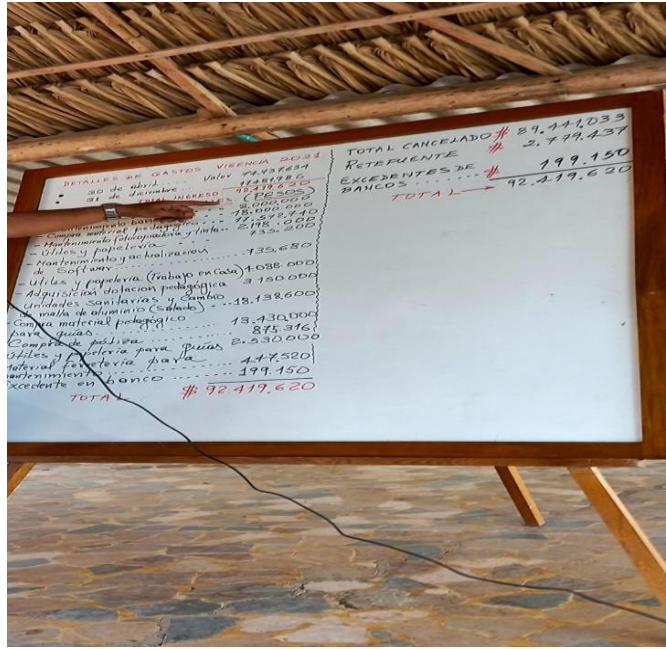 DETALLES DE GASTOS VIGENCIA 2021
30 de abril... Valor 74.937.634
31 de diciembre... 17.481.986
TOTAL INGRESO 92.419.620
(PESOS)
2.000.000
- Mantenimiento baños 18.000.000
- Compra material pedagógico 17.572.740
- Mantenimiento fotocopiadora y tinta.. 2.198.000
- Utiles y papelería 735.200
- Mantenimiento y actualización
de Softwar 735.680
- Utiles y papelería (Trabajo en Casa) 4.088.000
- Adquisición dotación pedagógica 3.150.000
- Unidades Sanitarias y Cambio
de malla de aluminio (Salado) 18.138.600
- Compra material pedagógico
para guias 13.430.000
Compra de póliza 875.316
Utiles y papelería para guias 2.530.000
Material ferretería para
mantenimiento 447.520
Excedente en banco 199.150
TOTAL #: 92.419.620
TOTAL CANCELADO # 89.441.033
RETEFUENTE # 2.779.437
EXCEDENTES DE
BANCOS ...... # 199.150
TOTAL → 92.419.620